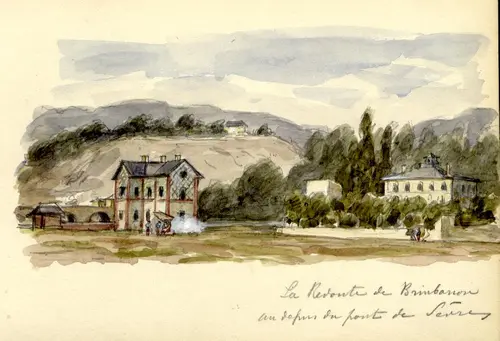 La Redoute de Brimborion
au dessus du pont de Sèvres